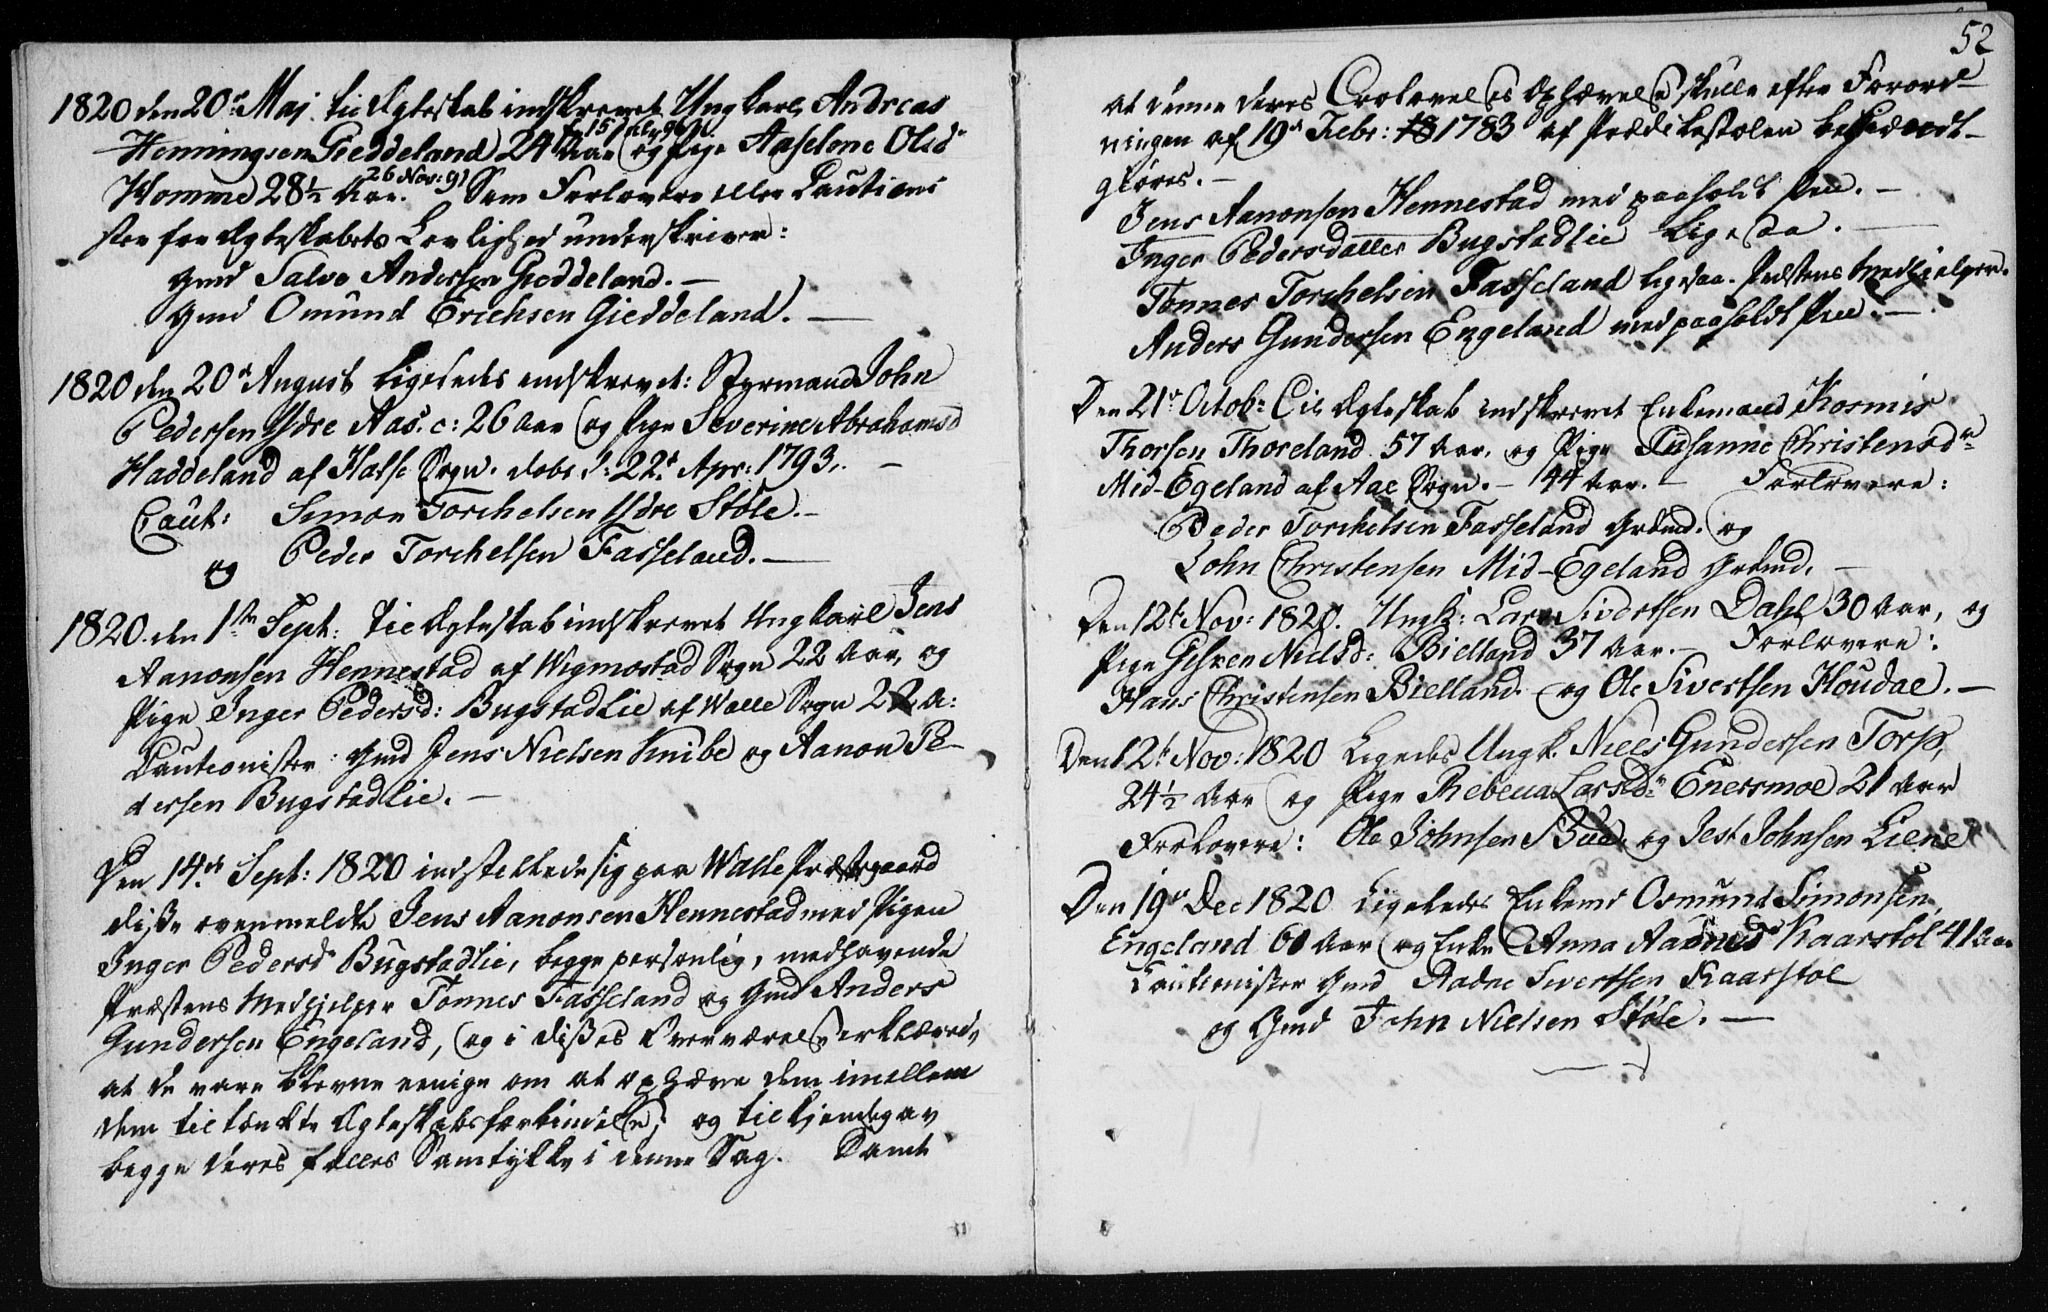 1820 den 20de Maj til Ægteskab indskrevet Ungkarl Andreas
Henningsen Gieddeland 24 Aar og Pige Aaselone Olsdr
Homme 28½ Aar. 26 Nov: 91 Som Forlovere eller Cautioni
ster for Ægteskabets Lovlighed underskriver:
Gmd Salve Andersen Gieddeland. —
Gmd Omund Erichsen Gieddeland. —
1820 den 20de August ligeledes indskrevet: Styrmand John
Pedersen Ydre Aas. c: 26 Aar og Pige Severine Abrahamsd
Haddeland af Halse Sogn. døbt d: 22de Apr: 1793. —
Caut: Simon Torchelsen Ydre Støle. —
og Peder Torchelsen Fasseland. —
1820. den 1ste Sept: til Ægteskab indskrevet Ungkarl Jens
Aanonsen Hennestad af Wigmostad Sogn 22 Aar, og
Pige Inger Pedersd: Bugstadlie af Walle Sogn 22 A:
Cautionister: Gmd Jens Nielsen Knibe og Aanon Pe-
dersen Bugstadlie. —
Den 14de Sept: 1820 indstillede sig paa Walle Præstegaard
disse ovenmeldte Jens Aanonsen Hennestad med Pigen
Inger Pedersdr Bugstadlie, begge personlig, medhavende
Præstens Medhjelper Tönnes Fasseland og Gmd Anders
Gundersen Engeland, og i disses Overværelse erklærede,
at de vare blevne eenige om at ophæve den imellem
dem tiltænkte Ægteskabsforbindelse; og tilkjendegav
begge deres fælles Samtykke i denne Sag. Samt
52
at denne deres Trolovelses Ophævelse skulle efter Forord-
ningen af 19de Febr: 1783 af Prædikestolen bekiendt-
giöres. —
Jens Aanonsen Hennestad med paaholdt Pen. —
Inger Pedersdatter Bugstadlie ligesaa. —
Tönnes Torchelsen Fasseland ligesaa. Præstens Medhjelper.
Anders Gundersen Engeland med paaholdt Pen. —
Den 21de Octob: til Ægteskab indskrevet Enkemand Kosmis
Thorsen Thoreland 57 Aar, og Pige Susanne Christensdr
Mid-Egeland af Aae Sogn. — 44 Aar. — Forlovere:
Peder Torchelsen Fasseland Grdmd. og
John Christensen Mid-Egeland Grdmd. —
Den 12te Nov: 1820. Ungk: Lars Sivertsen Dahl 30 Aar, og
Pige Gehren Nielsd: Bielland 37 Aar. — Forlovere:
Hans Christensen Bielland. og Ole Sivertsen Houdal. —
Den 12te Nov: 1820 Ligeledes Ungk. Niels Gundersen Torp,
24½ Aar og Pige Rebecca Larsdr Enersmoe 21 Aar
Forlovere: Ole Johnsen Bue, og Jest Johnsen Liene
Den 19de Dec 1820 Ligeledes Enkemd Osmund Simonsen
Engeland 60 Aar og Enke Anna Aadnesdr Kaarstøl 41 Aar
Cautionister Gmd Aadne Sivertsen Kaarstøl
og Gmd John Nielsen Støle. —